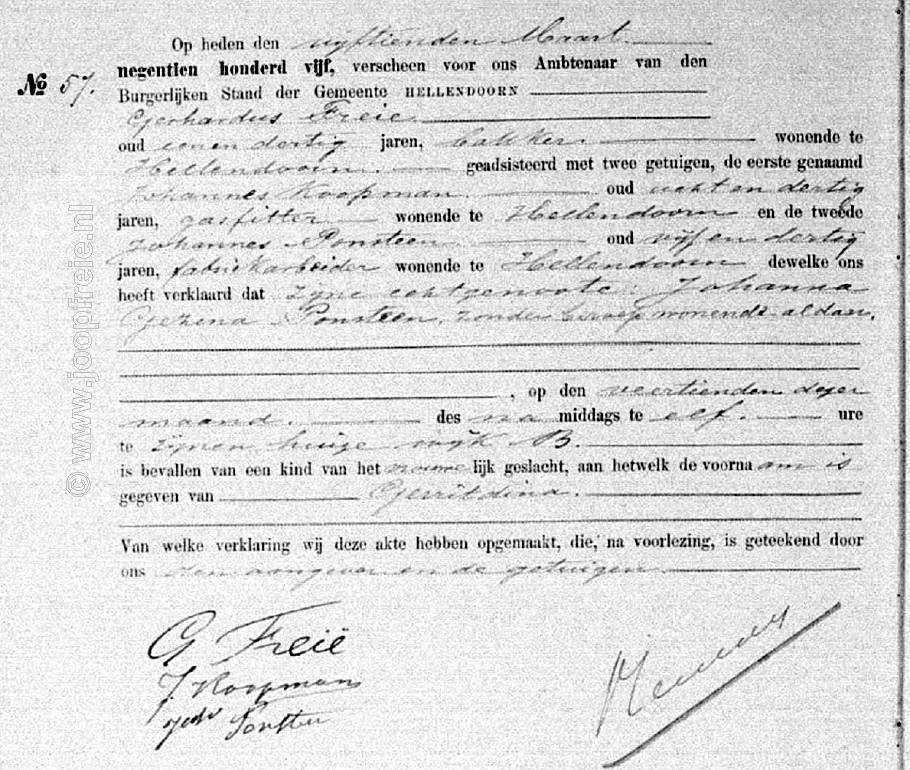 Op heden den vijftienden Maart
No 57.
negentien honderd vijf, verscheen voor ons Ambtenaar van den
Burgerlijken Stand der Gemeente HELLENDOORN
Gerhardus Freie
oud eenen dertig jaren, bakker wonende te
Hellendoorn. geadsisteerd met twee getuigen, de eerste genaamd
Johannes Koopman oud acht en dertig
jaren, gasfitter wonende te Hellendoorn en de tweede
Johannes Ponsteen oud vijf en dertig
jaren, fabriekarbeider wonende te Hellendoorn dewelke ons
heeft verklaard dat zijne echtgenoote: Johanna
Gezina Ponsteen, zonder beroep wonende aldaar,
, op den veertienden dezer
maand. des na middags te elf. ure
te zijnen huize wijk B.
is bevallen van een kind van het vrouwelijk geslacht, aan hetwelk de voornaam is
gegeven van Gerritdina.
Van welke verklaring wij deze akte hebben opgemaakt, die, na voorlezing, is geteekend door
ons den aangever en de getuigen
G Freië
J. Koopman
Ponsteen
© www.joopfreie.nl